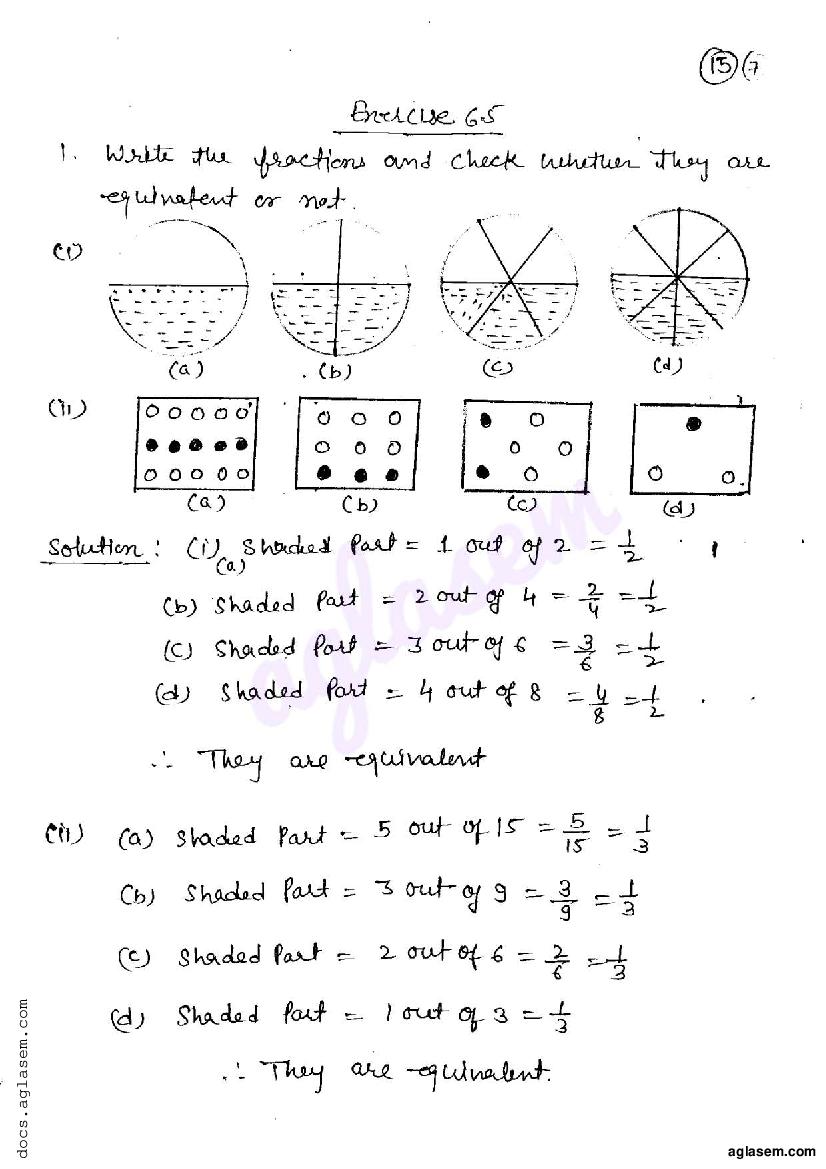 15 (7
Exercise 6.5
1. Write the fractions and check whether they are
equivalent or not.
(i)
(a) (b) (c) (d)
(ii)
(a) (b) (c) (d)
Solution : (i) (a) Shaded Part = 1 out of 2 = 1/2
(b) Shaded Part = 2 out of 4 = 2/4 = 1/2
(c) Shaded Part = 3 out of 6 = 3/6 = 1/2
(d) Shaded Part = 4 out of 8 = 4/8 = 1/2
∴ They are equivalent
(ii) (a) Shaded Part = 5 out of 15 = 5/15 = 1/3
(b) Shaded Part = 3 out of 9 = 3/9 = 1/3
(c) Shaded Part = 2 out of 6 = 2/6 = 1/3
(d) Shaded Part = 1 out of 3 = 1/3
∴ They are equivalent.
aglasem
docs.aglasem.com
aglasem.com